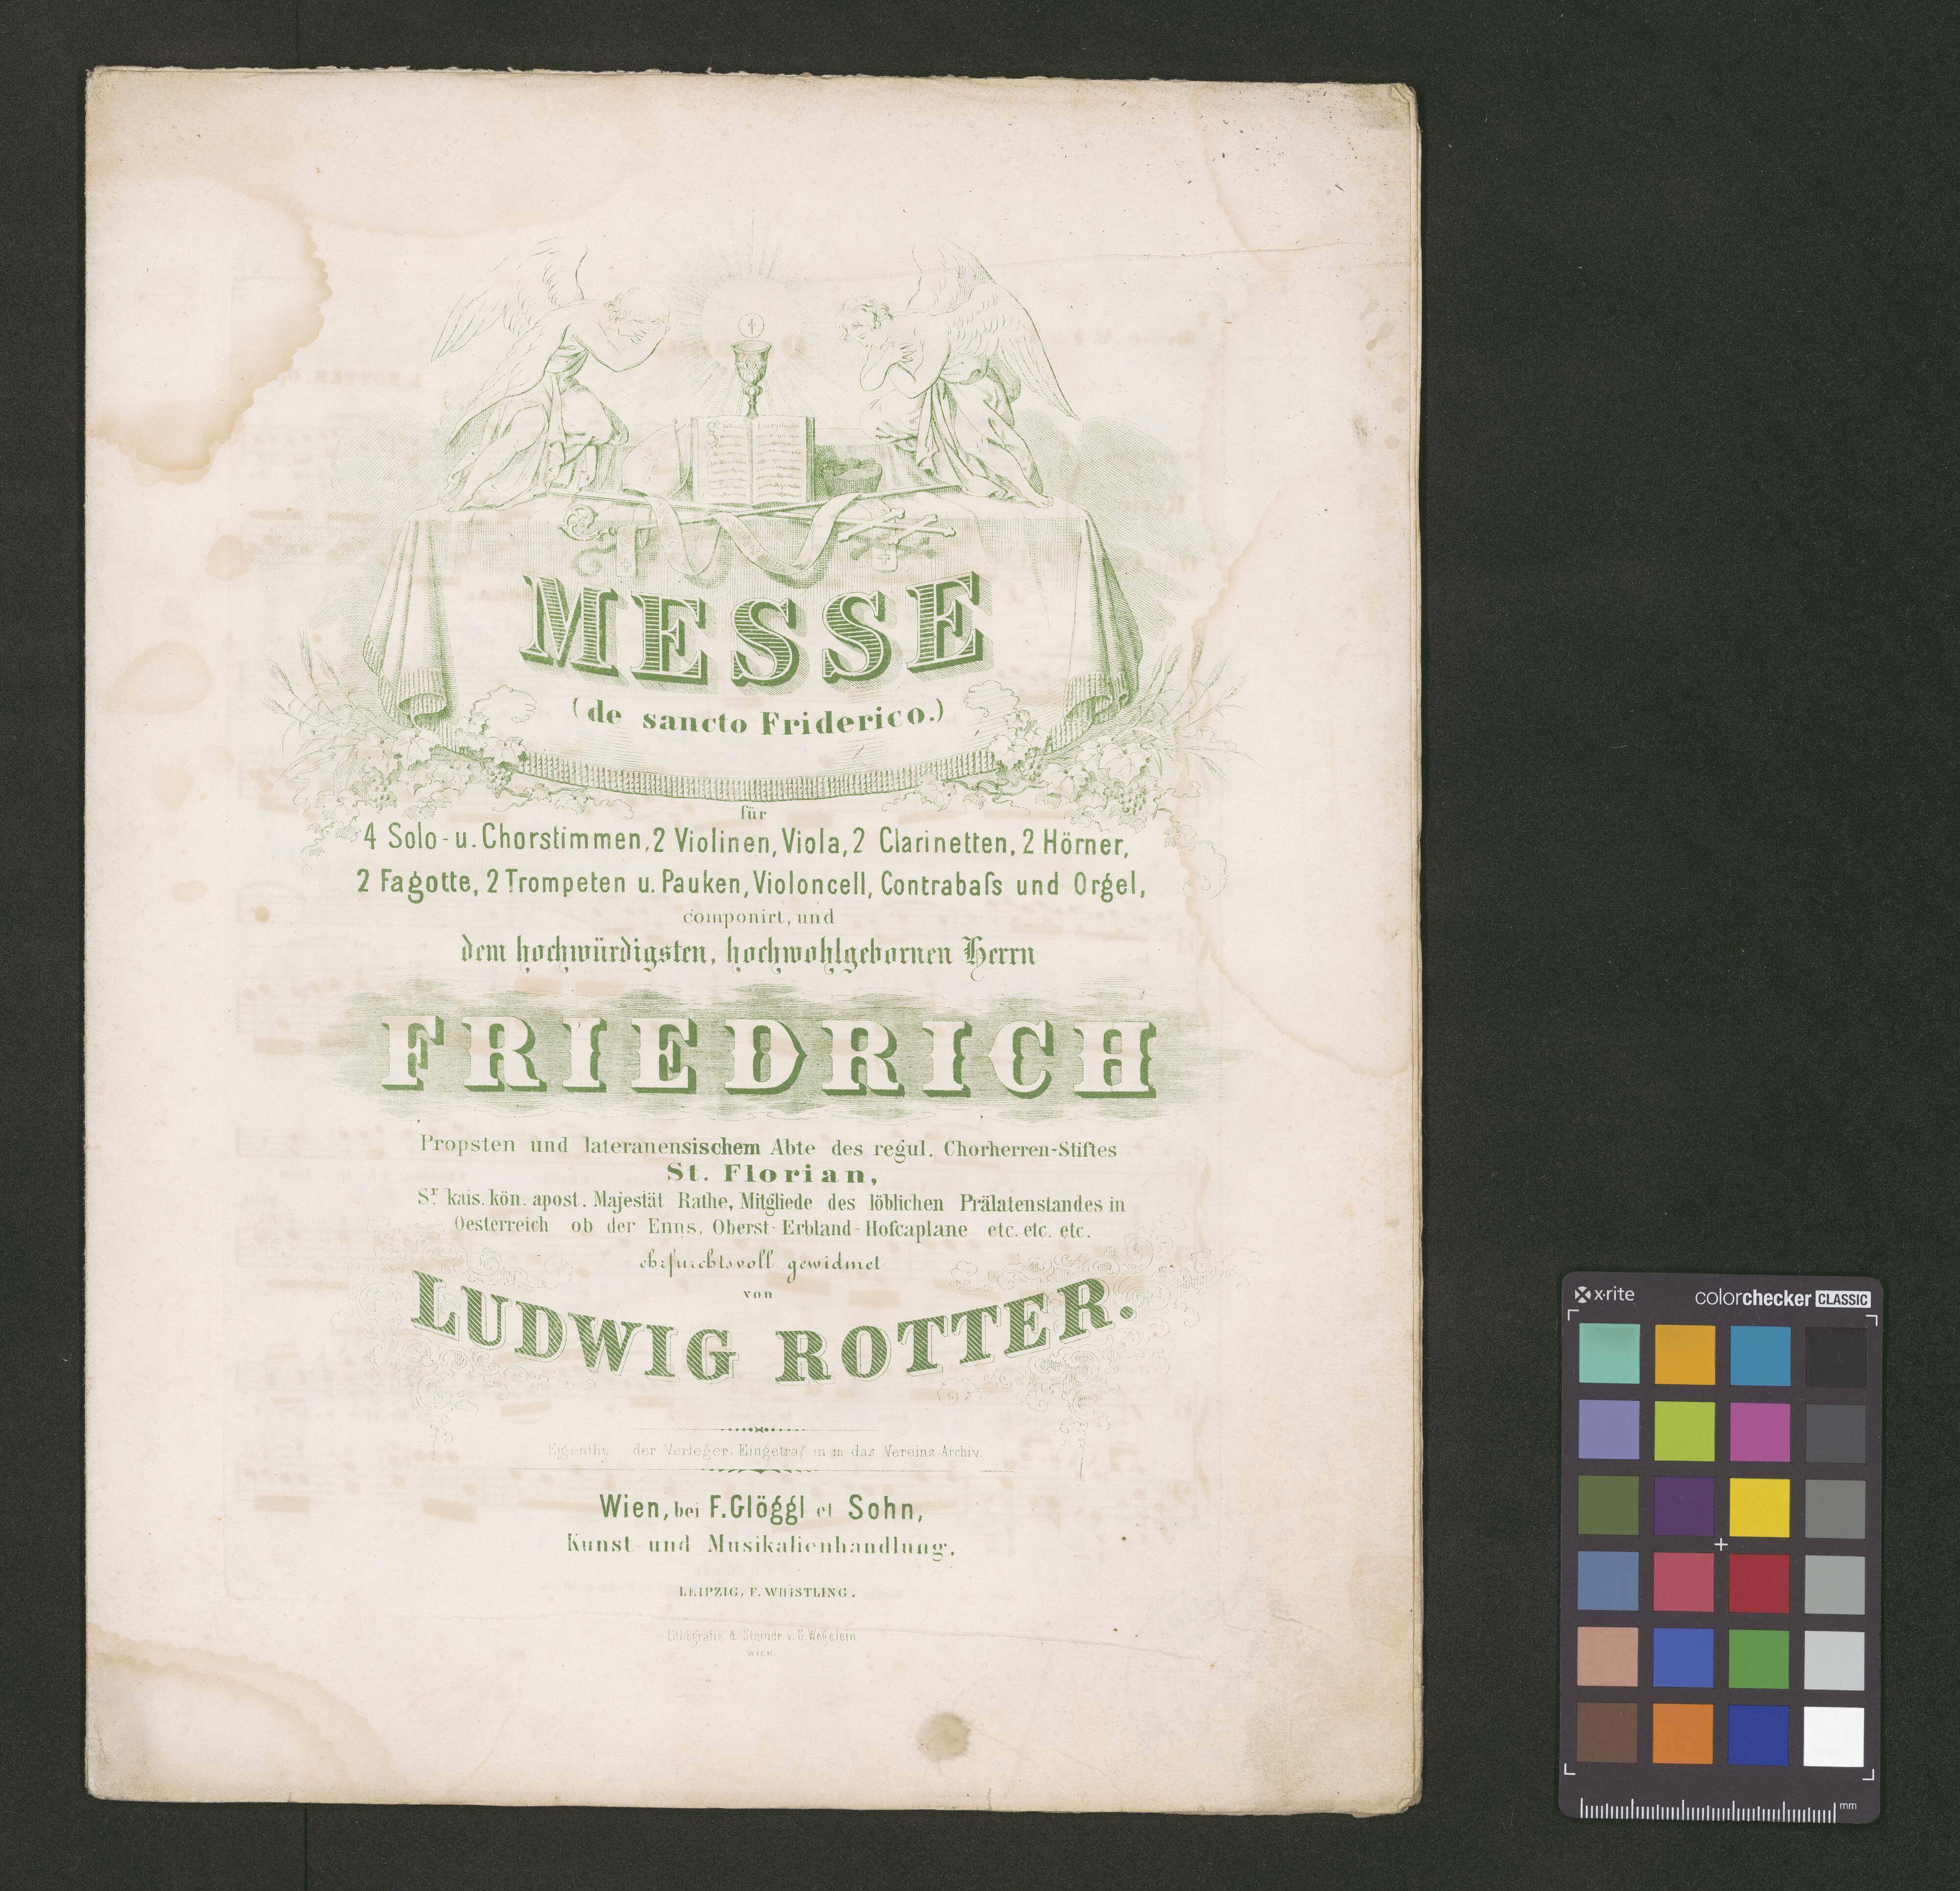 MESSE
(de sancto Friderico.)
für
4 Solo- u. Chorstimmen, 2 Violinen, Viola, 2 Clarinetten, 2 Hörner,
2 Fagotte, 2 Trompeten u. Pauken, Violoncell, Contrabaſs und Orgel,
componirt, und
dem hochwürdigsten, hochwohlgebornen Herrn
FRIEDRICH
Propsten und lateranensischem Abte des regul. Chorherren-Stiftes
St. Florian,
Sr. kais. kön. apost. Majestät Rathe, Mitgliede des löblichen Prälatenstandes in
Oesterreich ob der Enns, Oberst-Erbland-Hofcaplane etc. etc. etc.
ehrfurchtsvoll gewidmet
von
LUDWIG ROTTER.
der Verleger. in das Vereins-Archiv.
Wien, bei F. Glöggl et Sohn,
Kunst und Musikalienhandlung.
LEIPZIG, F. WHISTLING.
Lithografie & Steindr. v. G. Wegelein
WIEN.
x-rite colorchecker CLASSIC
mm